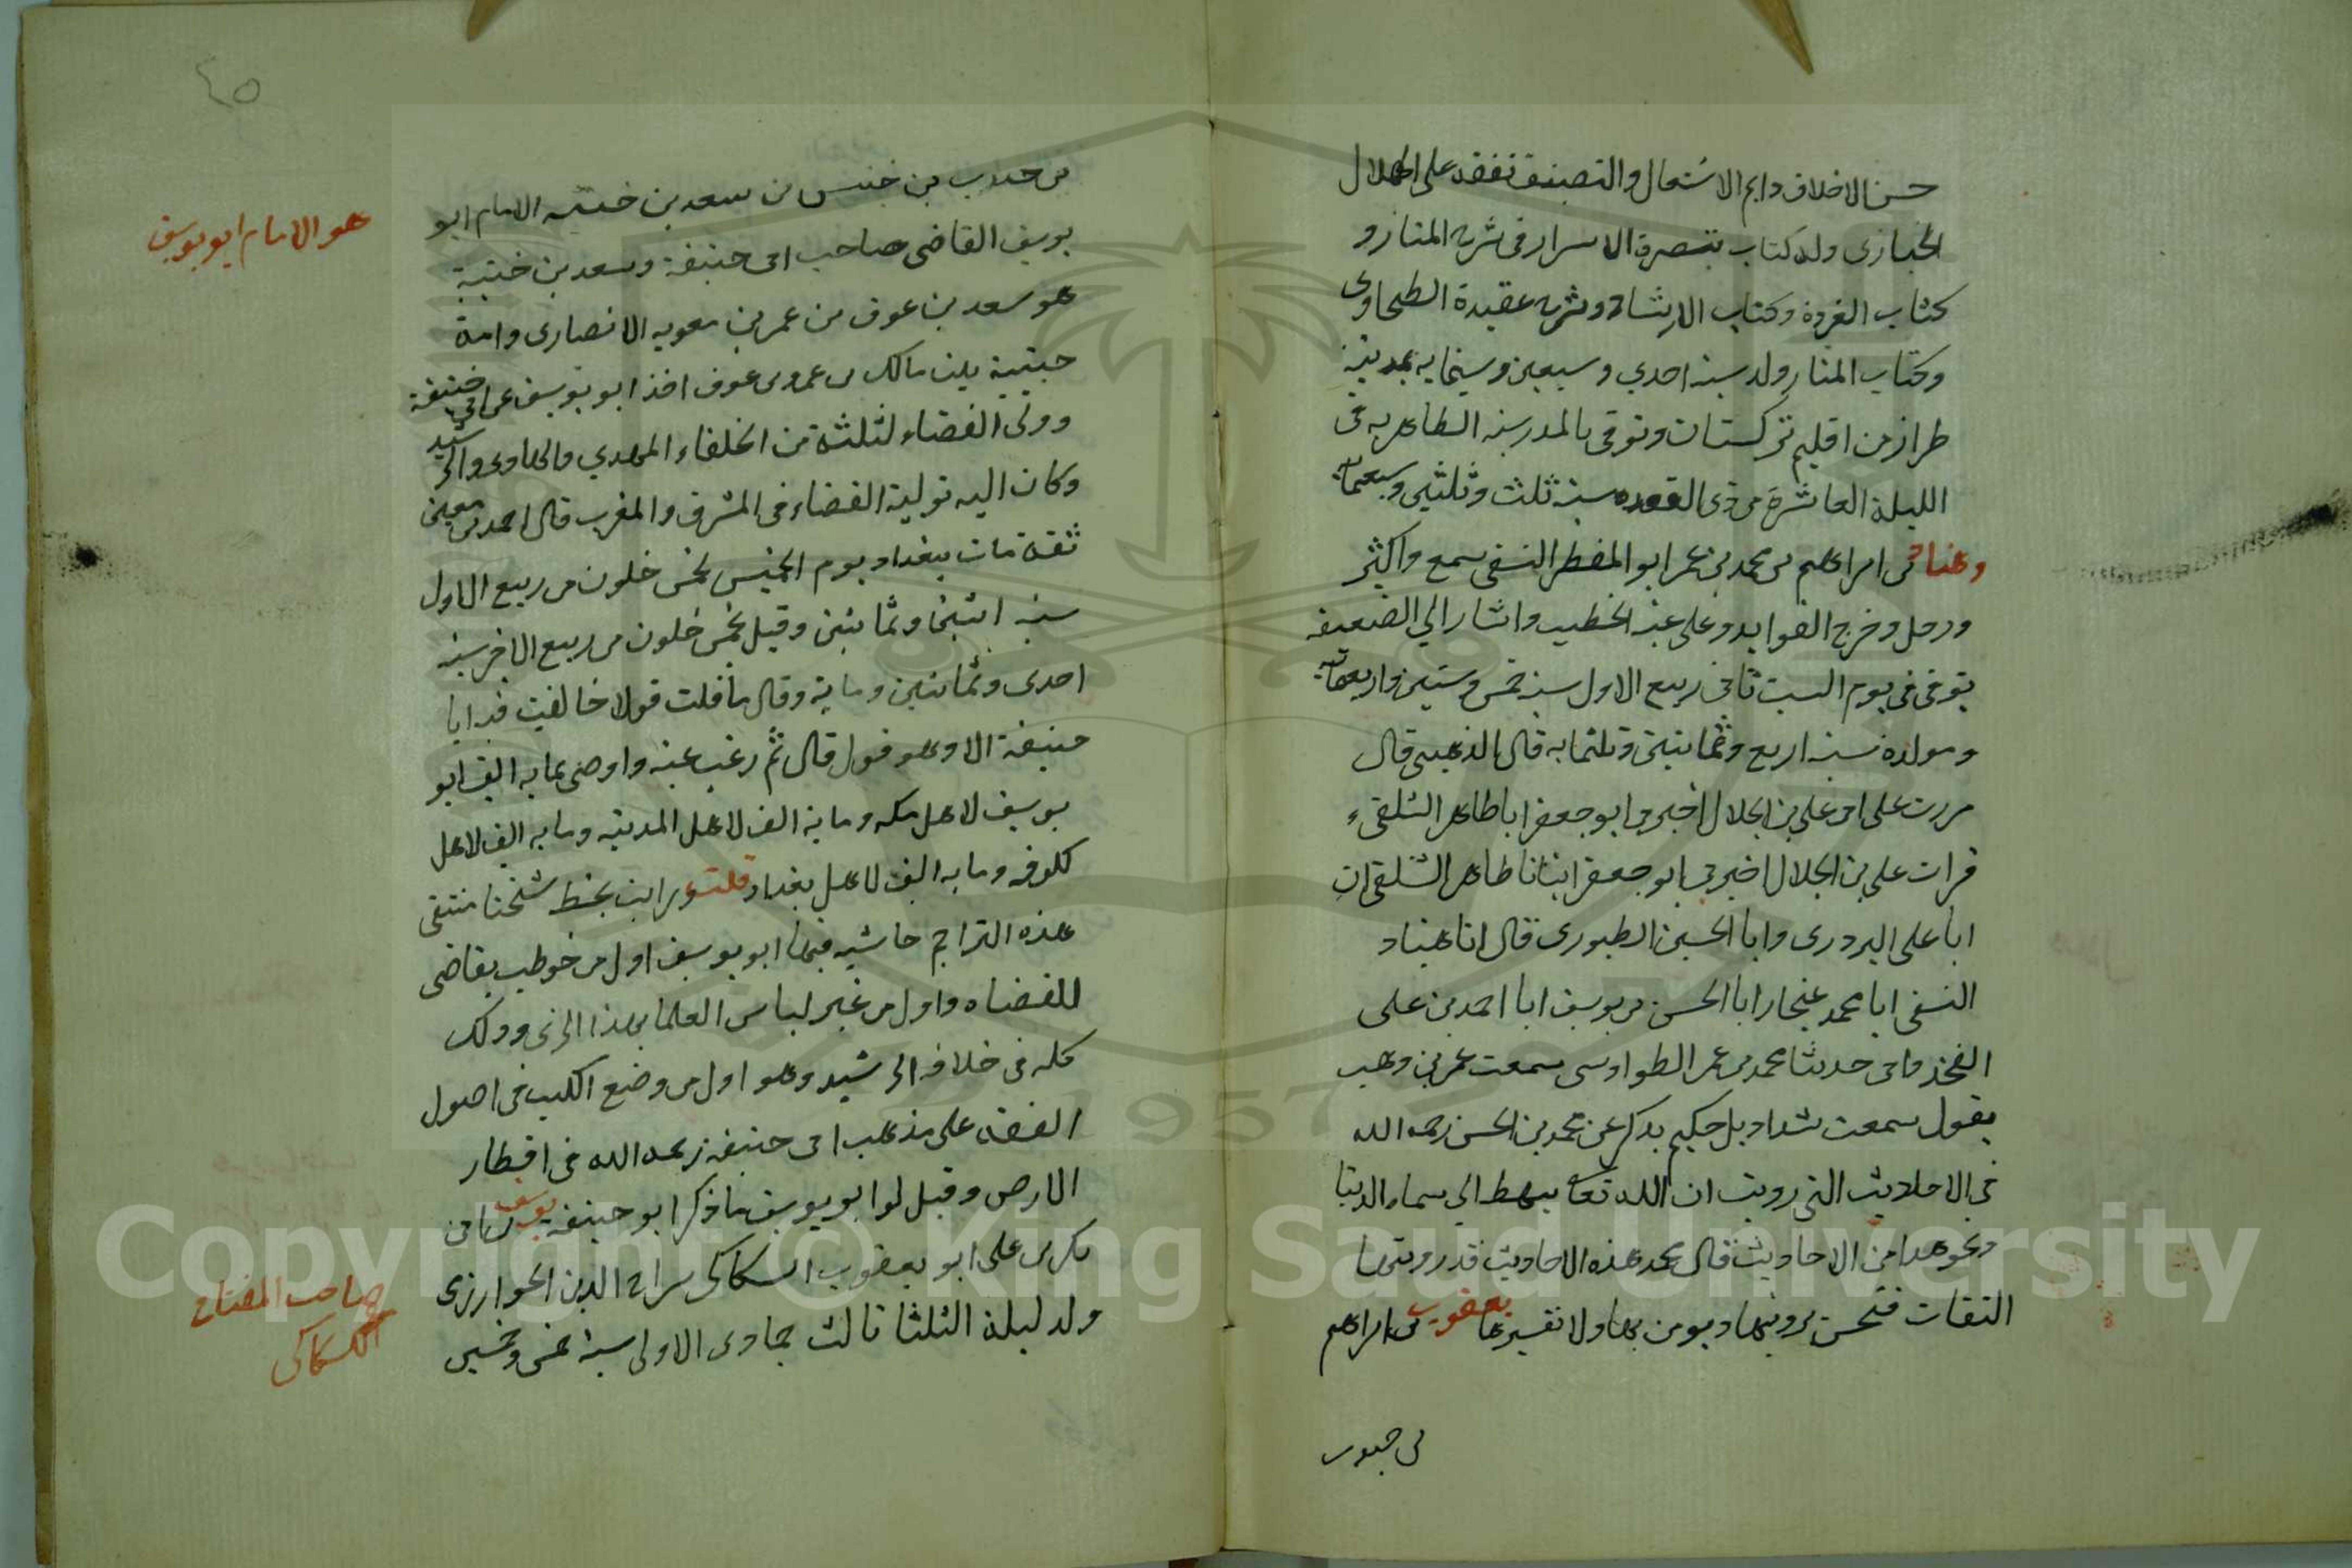 حسن الاخلاق دايم الاشتغال والتصنيف تفقه على الجلال
الخبازى وله كتاب تبصرة الاسرار فى شرح المنار و
كتاب الغرة وكتاب الارشاد وشرح عقيدة الطحاوى
وكتاب المنار ولد سنة احدي وسبعين وستماية بمدينة
طراز من اقليم تركستان وتوفى بالمدرسة الظاهريه فى
الليلة العاشرة من ذى القعده سنة ثلث وثلثين وسبعماية
وهناد بن ابراهيم بن محمد بن عمر ابو المظفر النسفى سمع واكثر
ورحل وخرج الفوايد وعلى عنه الخطيب واشار الي الضعيفه
توفى فى يوم السبت ثانى ربيع الاول سنة خمس وستين واربعماية
ومولده سنة اربع وثمانين وثلثمايه قال الذهبى قال
مررت على ابى على بن الجلال اخبرم ابو جعفر ابا طاهر الشلفىء
قرات على بن الجلال اخبركم ابو جعفر انبانا طاهر الشلفى ان
ابا على البردرى وابا الحسين الطيورى قال انا هناد
النسفى ابا محمد غنجار ابا الحسن بن يوسف ابا احمد بن على
حدثنا محمد بن عمر الطواوسى سمعت عمر بن وهب
يقول سمعت شداد بن حكيم يذكر عن محمد بن الحسن رحمه الله
فى الاحاديث التى رويت ان الله تعا يهبط الي سماء الدنيا
ونحو هدا من الاحاديث قال محمد هذه الاحاديث قد روتها
الثقات فنحن نرويها ونومن بها ولا نفسرها يعقوب بن ابراهيم
بن حبيب
٤٥
بن حبيب بن خنيس بن سعد بن حبتيه الامام ابو
يوسف القاضى صاحب ابى حنيفة وسعد بن حبتية
هو سعد بن عوف بن عمر بن معويه الانصارى وامه
حبتية بنت مالك بن عمرو بن عوف اخذ ابو يوسف عن ابى حنيفة
وولى القضاء لثلثة من الخلفاء المهدي والهادى والرشيد
وكان اليه تولية القضاء فى المشرق والمغرب قال احمد بن معين
ثقة مات ببغداد يوم الخميس لخمس خلون من ربيع الاول
سنة اثنين وثمانين وقيل لخمس خلون من ربيع الاخر سنة
احدى وثمانين وماية وقال ما قلت قولا خالفت فيه ابا
حنيفة الا وهو قول قال ثم رغب عنه واوصى بمايه الف ابو
يوسف لاهل مكه وماية الف لاهل المدينه ومايه الف لاهل
كلوفه ومايه الف لاهل بغداد قلت ورايت بخط شيخنا منتقى
هذه التراجم حاشيه فيها ابو يوسف اول من خوطب بقاضى
القضاه واول من غير لباس العلما بهذا الزى وذلك
كله فى خلافه الرشيد وهو اول من وضع الكتب فى اصول
الفقه على مذهب ابى حنيفة رحمه الله فى اقطار
الارض وقيل لو ابو يوسف ما ذكر ابو حنيفة يوسف بن ابى
بكر بن على ابو يعقوب السكاكى سراج الدين الخوارزى
ولد ليلة الثلثا ثالث جمادى الاولى سنة خمس وخمسين
هو الامام ابو يوسف
صاحب المفتاح
السكاكى
Copyright © King Saud University
1957